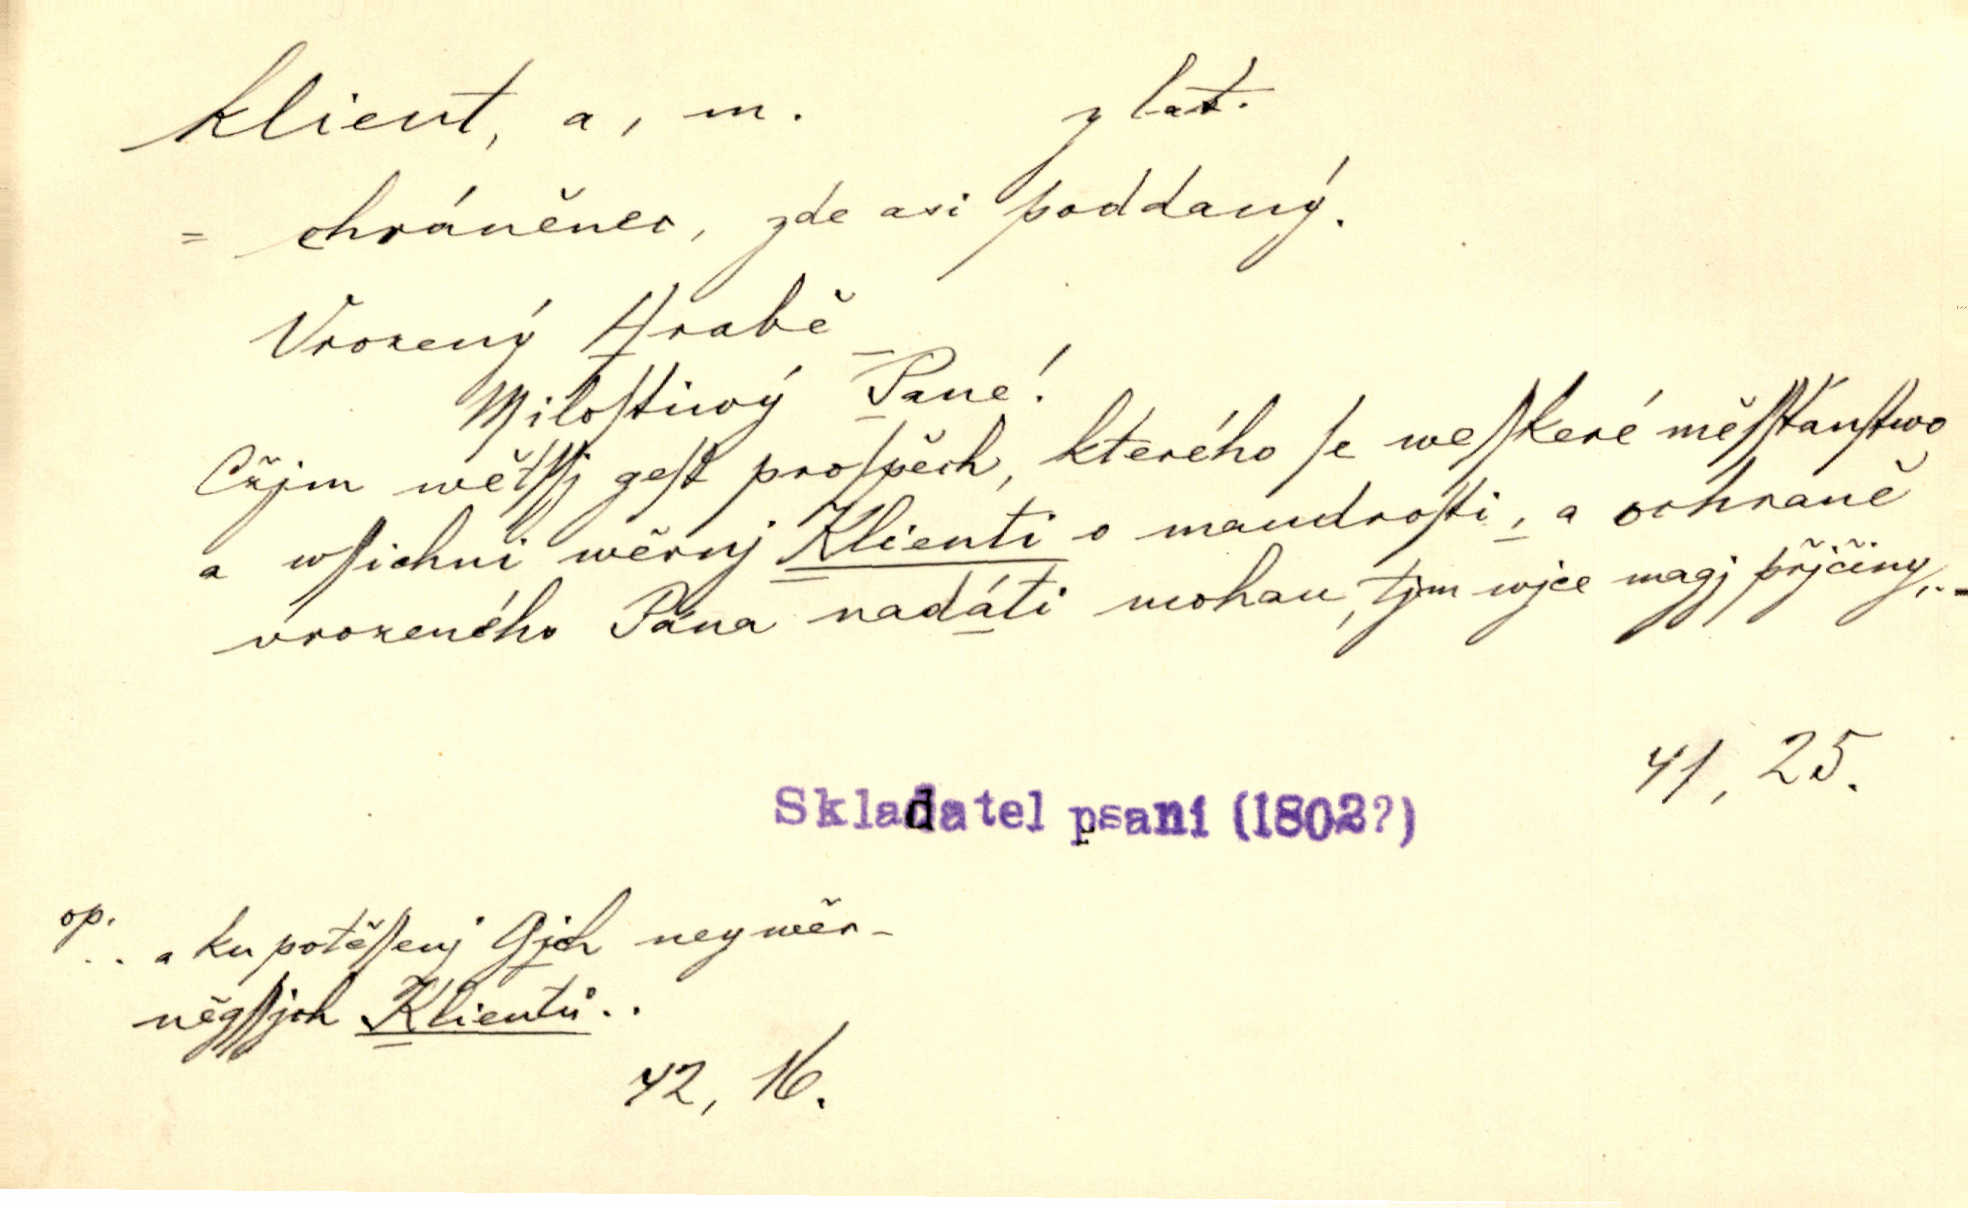 klient, a, m. z lat.
= chráněnec, zde asi poddaný.
Vrozený Hrabě
Miloſtiwý Pane!
Cžjm wětſſj geſt proſpěch, kterého ſe weſkeré měſſťanſtwo
a wſſichni wěrnj Klienti o maudroſti, a ochraně
vrozeného Pána nadáti mohau, tjm wjce magj přjčiny,..-
41, 25.
Skladatel psaní (1802?)
op.
.. a ku potěſſenj Gjch neywěr-
něgſſjch Klientů..
42, 16.